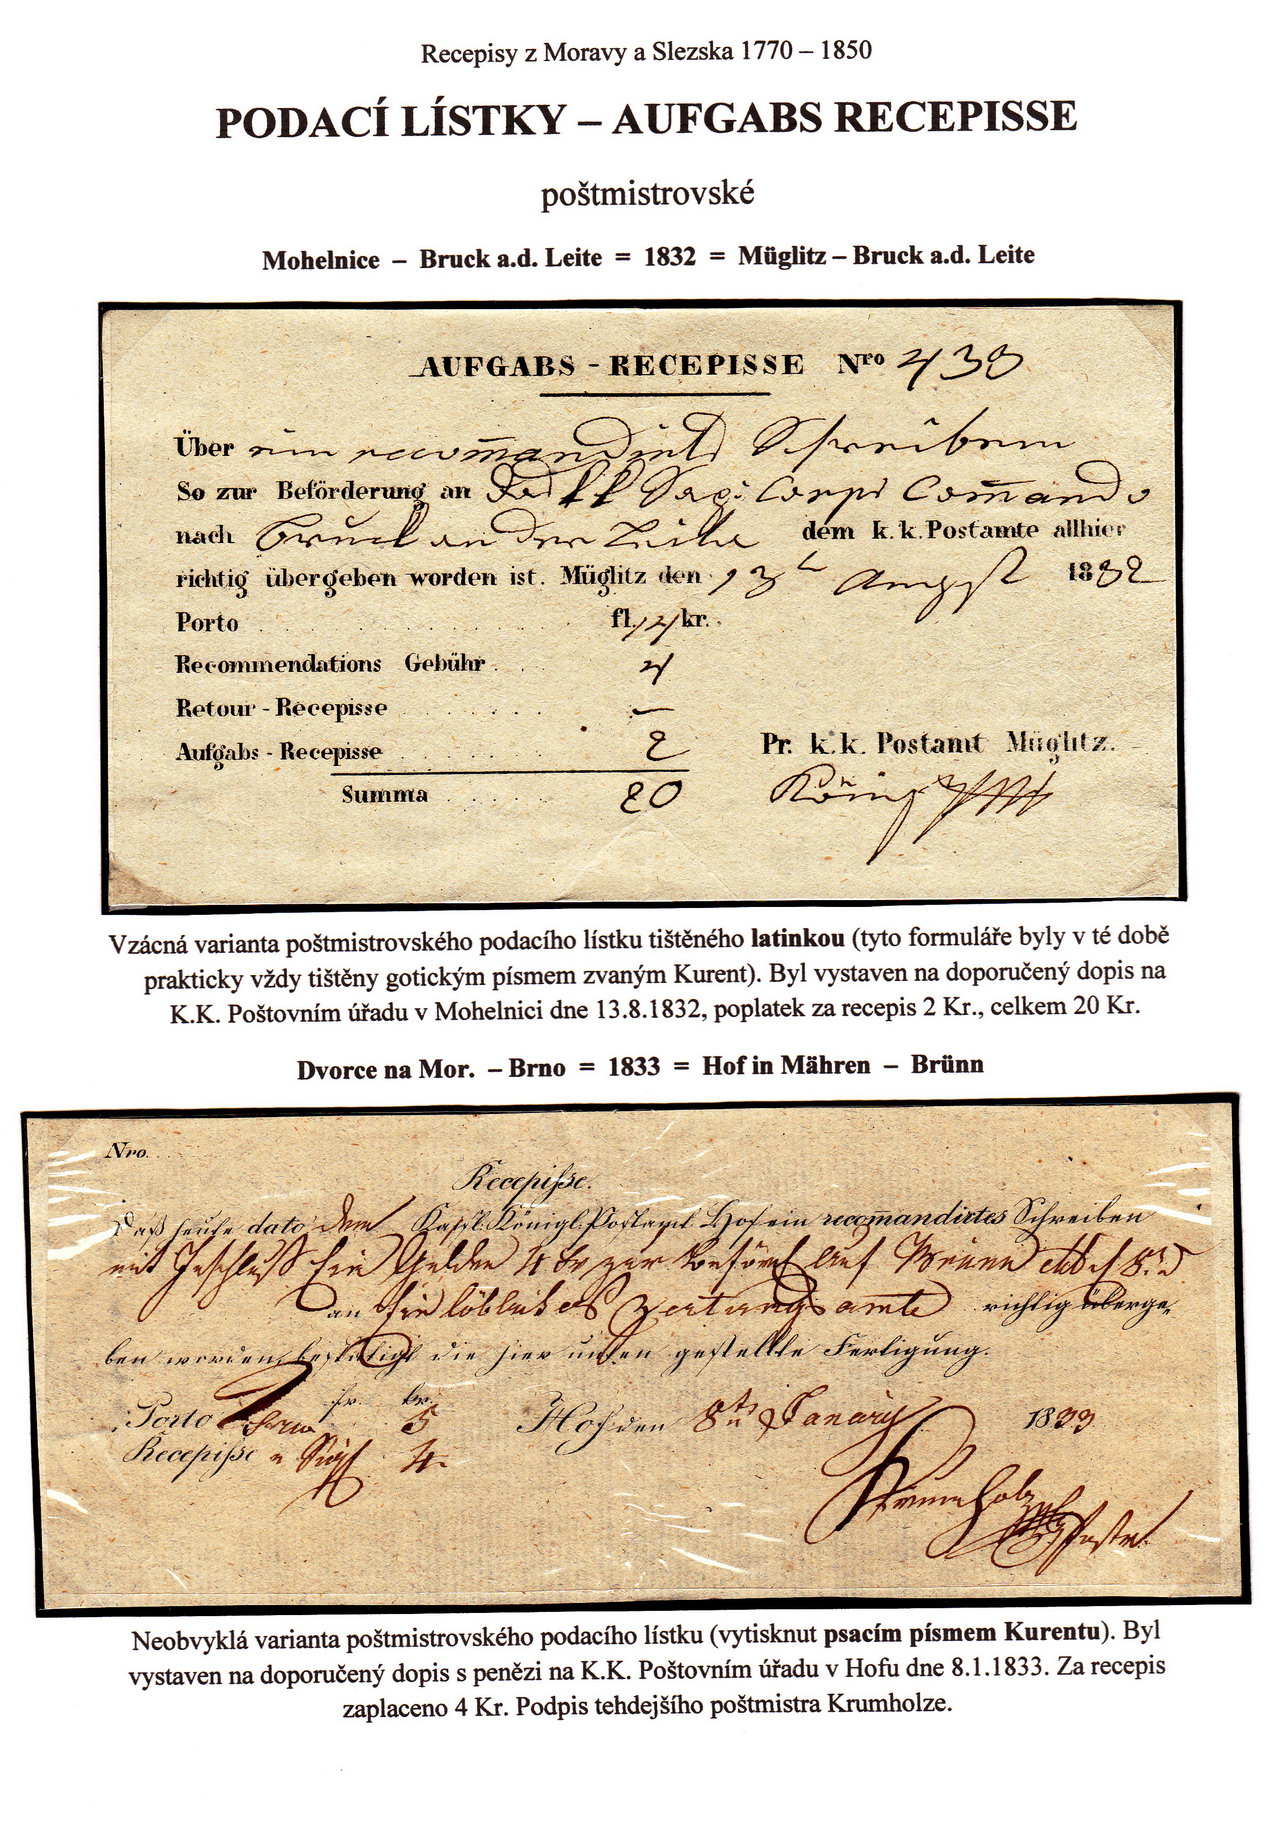 Recepisy z Moravy a Slezska 1770 – 1850
PODACÍ LÍSTKY – AUFGABS RECEPISSE
poštmistrovské
Mohelnice – Bruck a.d. Leite = 1832 = Müglitz – Bruck a.d. Leite
AUFGABS - RECEPISSE Nro 430
Über ein recom̅andirtes Schreiben
So zur Beförderung an Das k k Corps Com̅ando
nach Bruck an der Leitha dem k. k. Postamte allhier
richtig übergeben worden ist. Müglitz den 13t August 1832
Porto fl. 14 kr.
Recommendations Gebühr 4
Retour - Recepisse –
Aufgabs - Recepisse 2
Pr. k. k. Postamt Müglitz.
Summa 20
König
Vzácná varianta poštmistrovského podacího lístku tištěného latinkou (tyto formuláře byly v té době
prakticky vždy tištěny gotickým písmem zvaným Kurent). Byl vystaven na doporučený dopis na
K.K. Poštovním úřadu v Mohelnici dne 13.8.1832, poplatek za recepis 2 Kr., celkem 20 Kr.
Dvorce na Mor. – Brno = 1833 = Hof in Mähren – Brünn
Nro.
Recepisse.
Daß heute dato dem Kaisl. Königl. Postamt Hof ein recom̅andirtes Schreiben
mit Ein Gulden 4 kr zur auf Brünn
an Ein löbliches richtig überge-
ben worden, bestätigt die hier unten gestellte Fertigung.
fr. kr.
Porto 5 Hof den 8tn Januar 1833
Recepisse 4
Krumholz
Neobvyklá varianta poštmistrovského podacího lístku (vytisknut psacím písmem Kurentu). Byl
vystaven na doporučený dopis s penězi na K.K. Poštovním úřadu v Hofu dne 8.1.1833. Za recepis
zaplaceno 4 Kr. Podpis tehdejšího poštmistra Krumholze.